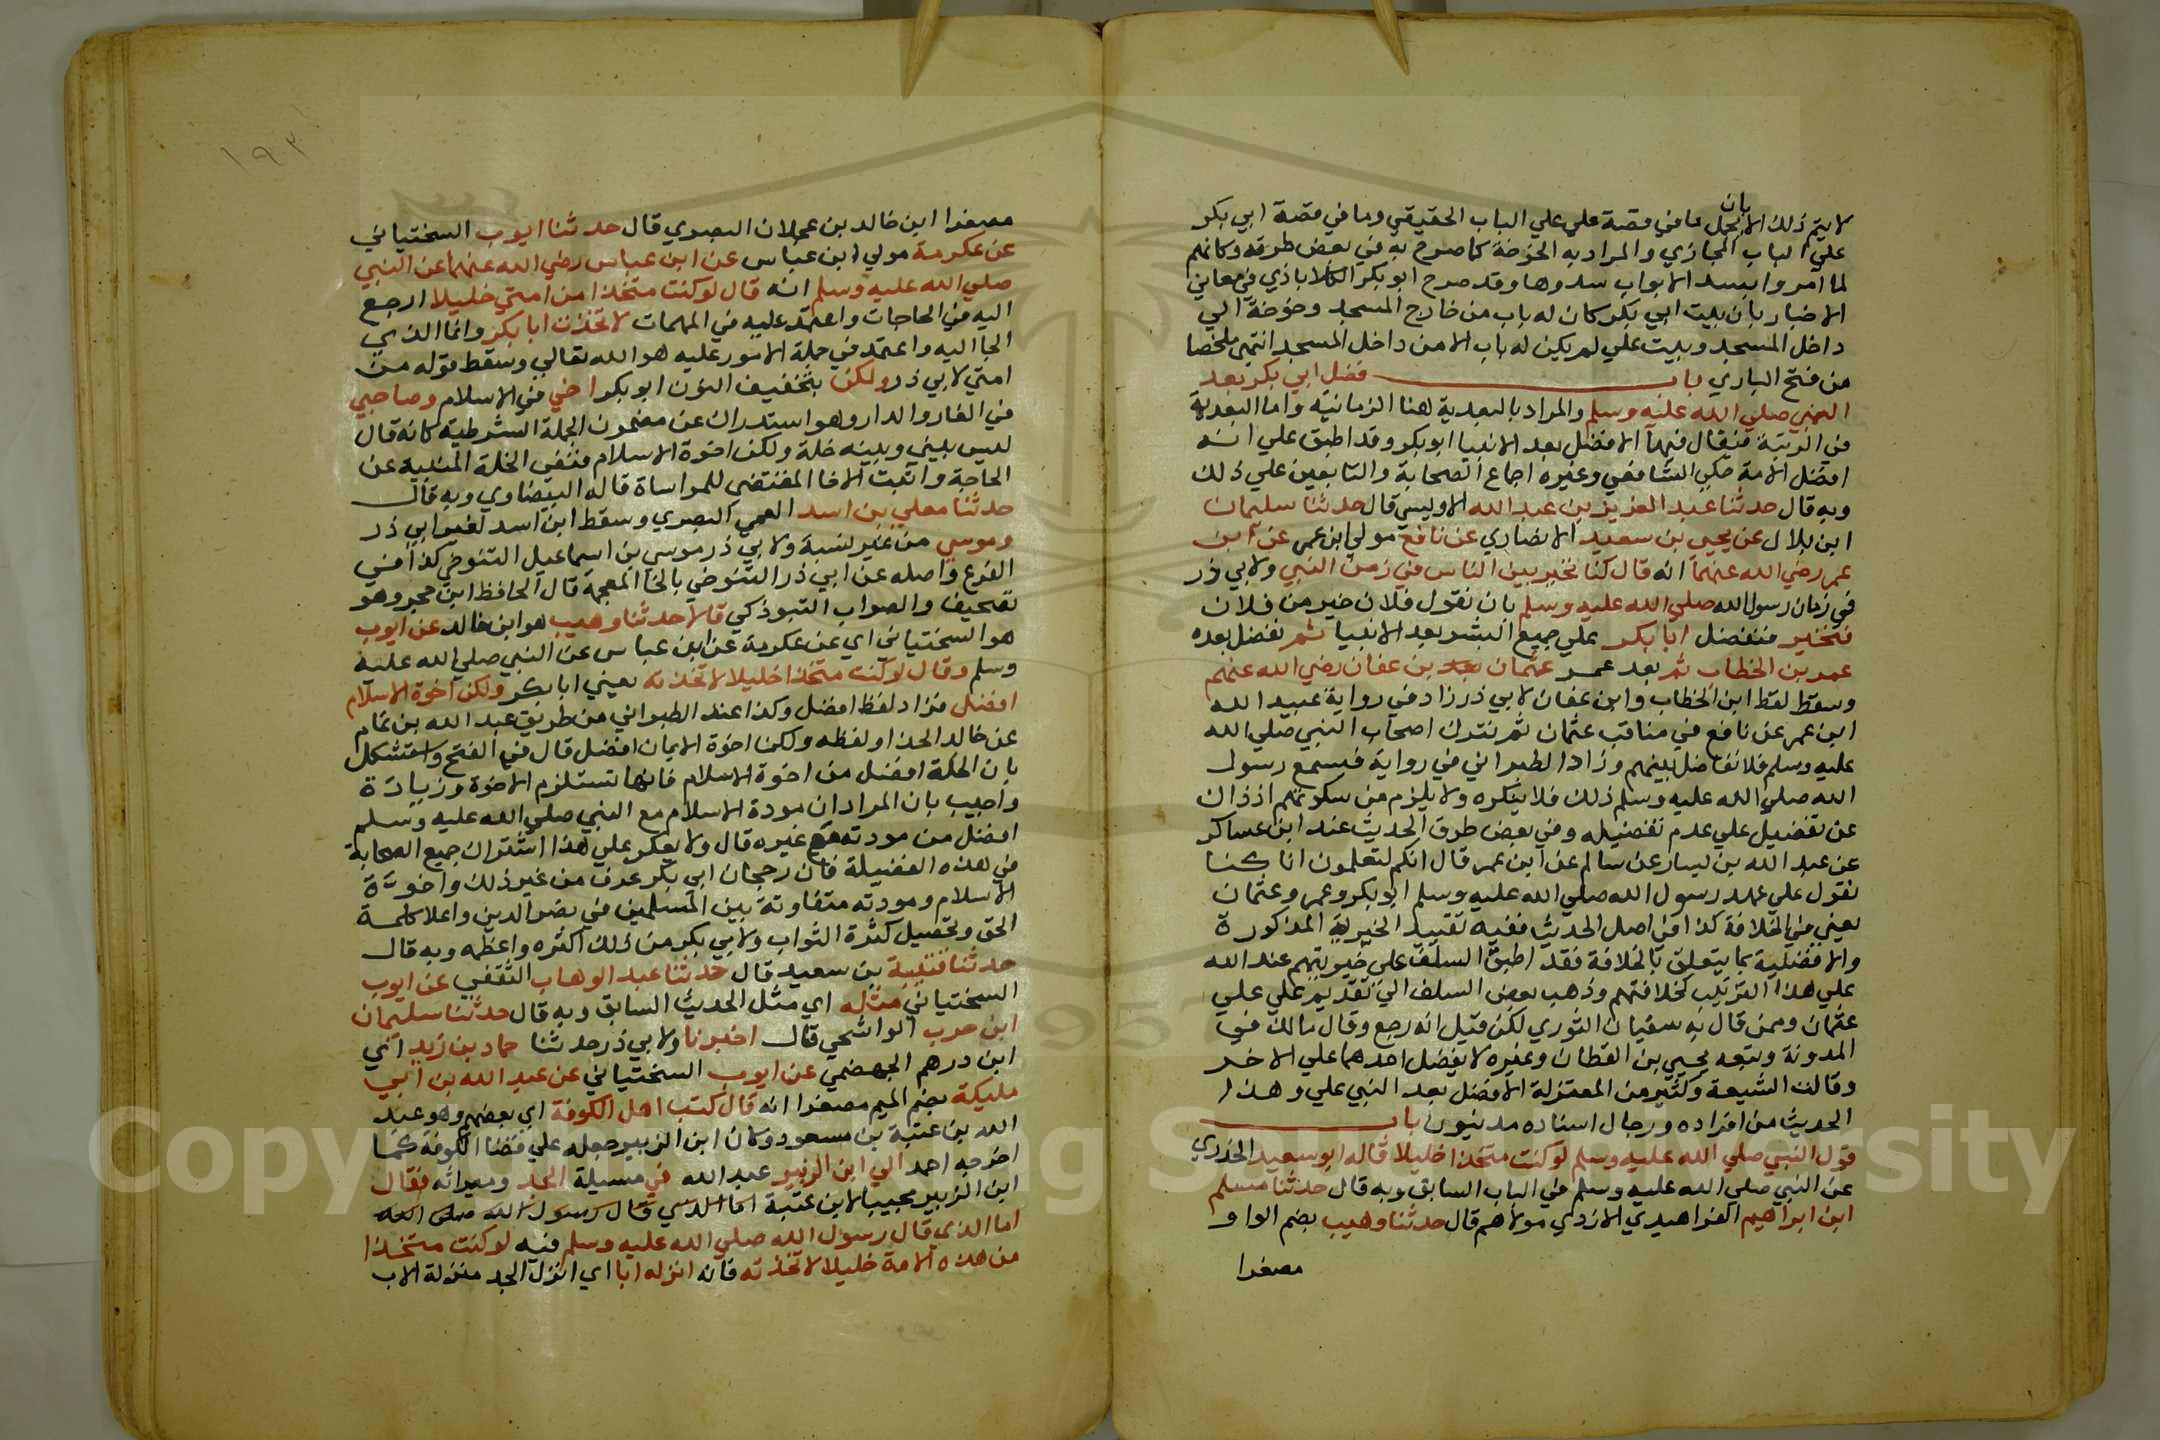 بان
لا يتم ذلك الا بحمل ما في قصة علي علي الباب الحقيقي وما في قصة ابي بكر
علي الباب المجازي والمراد به الخوخة كما صرح به في بعض طرقه وكانهم
لما امروا بسد الابواب سدوها وقد صرح ابو بكر الكلاباذي في معاني
الاخبار بان بيت ابي بكر كان له باب من خارج المسجد وخوخة الي
داخل المسجد وبيت علي لم يكن له باب الا من داخل المسجد انتهي ملخصا
من فتح الباري باب فضل ابي بكر بعد
النبي صلي الله عليه وسلم والمراد بالبعدية هنا الزمانية واما البعدية
في الرتبة فيقال فيها الافضل بعد الانبيا ابو بكر وقد اطبق علي انه
افضل الامة حكي الشافعي وغيره اجماع الصحابة والتابعين علي ذلك
وبه قال حدثنا عبد العزيز بن عبد الله الاويسي قال حدثنا سليمان
ابن بلال عن يحيي بن سعيد الانصاري عن نافع مولي ابن عمر عن ابن
عمر رضي الله عنهما انه قال كنا نخير بين الناس في زمن النبي ولابي ذر
في زمان رسول الله صلي الله عليه وسلم بان نقول فلان خير من فلان
فنخير فنفضل ابا بكر علي جميع البشر بعد الانبيا ثم نفضل بعده
عمر بن الخطاب ثم بعد عمر عثمان بن عفان رضي الله عنهم
وسقط لفظ ابن الخطاب وابن عفان لابي ذر زاد في رواية عبيد الله
ابن عمر عن نافع في مناقب عثمان ثم نترك اصحاب النبي صلي الله
عليه وسلم فلا نفاضل بينهم وزاد الطبراني في رواية فيسمع رسول
الله صلي الله عليه وسلم ذلك فلا ينكره ولا يلزم من سكوتهم اذ ذاك
عن تفضيل علي عدم تفضيله وفي بعض طرق الحديث عند ابن عساكر
عن عبد الله بن يسار عن سالم عن ابن عمر قال انكم لتعلمون انا كنا
نقول علي عهد رسول الله صلي الله عليه وسلم ابو بكر وعمر وعثمان
يعني في الخلافة كذا في اصل الحديث ففيه تقييد الخيرية المذكورة
والافضلية بما يتعلق بالخلافة فقد اطبق السلف علي خيريتهم عند الله
علي هذا الترتيب كخلافتهم وذهب بعض السلف الي تقديم علي علي
عثمان وممن قال به سفيان الثوري لكن قيل انه رجع وقال مالك في
المدونة وتبعه يحيي بن القطان وغيره لا يفضل احدهما علي الاخر
وقالت الشيعة وكثير من المعتزلة الافضل بعد النبي علي وهذا
الحديث من افراده ورجال اسناده مدنيون باب
قول النبي صلي الله عليه وسلم لو كنت متخذا خليلا قاله ابو سعيد الخدري
عن النبي صلي الله عليه وسلم في الباب السابق وبه قال حدثنا مسلم
ابن ابراهيم الفراهيدي الازدي مولاهم قال حدثنا وهيب بضم الواو
مصغرا
١٩٣
مصغرا ابن خالد بن عجلان البصري قال حدثنا ايوب السختياني
عن عكرمة مولي ابن عباس عن ابن عباس رضي الله عنهما عن النبي
صلي الله عليه وسلم انه قال لو كنت متخذا من امتي خليلا ارجع
اليه في الحاجات واعتمد عليه في المهمات لاتخذت ابا بكر وانما الذي
الجا اليه واعتمد في جملة الامور عليه هو الله تعالي وسقط قوله من
امتي لابي ذر ولكن بتخفيف النون ابو بكر اخي في الاسلام وصاحبي
في الغار والدار وهو استدراك عن مضمون الجملة الشرطية كانه قال
ليس بيني وبينه خلة ولكن اخوة الاسلام فنفي الخلة المنبية عن
الحاجة واثبت الاخا المقتضي للمواساة قاله البيضاوي وبه قال
حدثنا معلي بن اسد العمي البصري وسقط ابن اسد لغير ابي ذر
وموسي من غير نسبة ولابي ذر موسي بن اسماعيل التنوخي كذا في
الفرع واصله عن ابي ذر التنوخي بالخا المعجمة قال الحافظ ابن حجر وهو
تصحيف والصواب التبوذكي قالا حدثنا وهيب هو ابن خالد عن ايوب
هو السختياني اي عن عكرمة عن ابن عباس عن النبي صلي الله عليه
وسلم وقال لو كنت متخذا خليلا لاتخذته يعني ابا بكر ولكن اخوة الاسلام
افضل فزاد لفظ افضل وكذا عند الطبراني من طريق عبد الله بن تمام
عن خالد الحذا ولفظه ولكن اخوة الايمان افضل قال في الفتح واستشكل
بان الخلة افضل من اخوة الاسلام فانها تستلزم الاخوة وزيادة
واجيب بان المراد ان مودة الاسلام مع النبي صلي الله عليه وسلم
افضل من مودته مع غيره قال ولا يعكر علي هذا اشتراك جميع الصحابة
في هذه الفضيلة فان رجحان ابي بكر عرف من غير ذلك واخوة
الاسلام ومودته متفاوتة بين المسلمين في نصر الدين واعلا كلمة
الحق وتحصيل كثرة الثواب ولابي بكر من ذلك اكثره واعظمه وبه قال
حدثنا قتيبة بن سعيد قال حدثنا عبد الوهاب الثقفي عن ايوب
السختياني مثله اي مثل الحديث السابق وبه قال حدثنا سليمان
ابن حرب الواشحي قال اخبرنا ولابي ذر حدثنا حماد بن زيد اي
ابن درهم الجهضمي عن ايوب السختياني عن عبد الله بن ابي
مليكة بضم الميم مصغرا انه قال كتب اهل الكوفة اي بعضهم وهو عبد
الله بن عتبة بن مسعود وكان ابن الزبير جعله علي قضا الكوفة كما
اخرجه احمد الي ابن الزبير عبد الله في مسيلة الجد وميراثه فقال
ابن الزبير مجيبا لابن عتبة اما الذي قال رسول الله صلى الله
اما الذي قال رسول الله صلي الله عليه وسلم فيه لو كنت متخذا
من هذه الامة خليلا لاتخذته فانه انزله ابا اي انزل الجد منزلة الاب
Copyright © King Saud University
1957